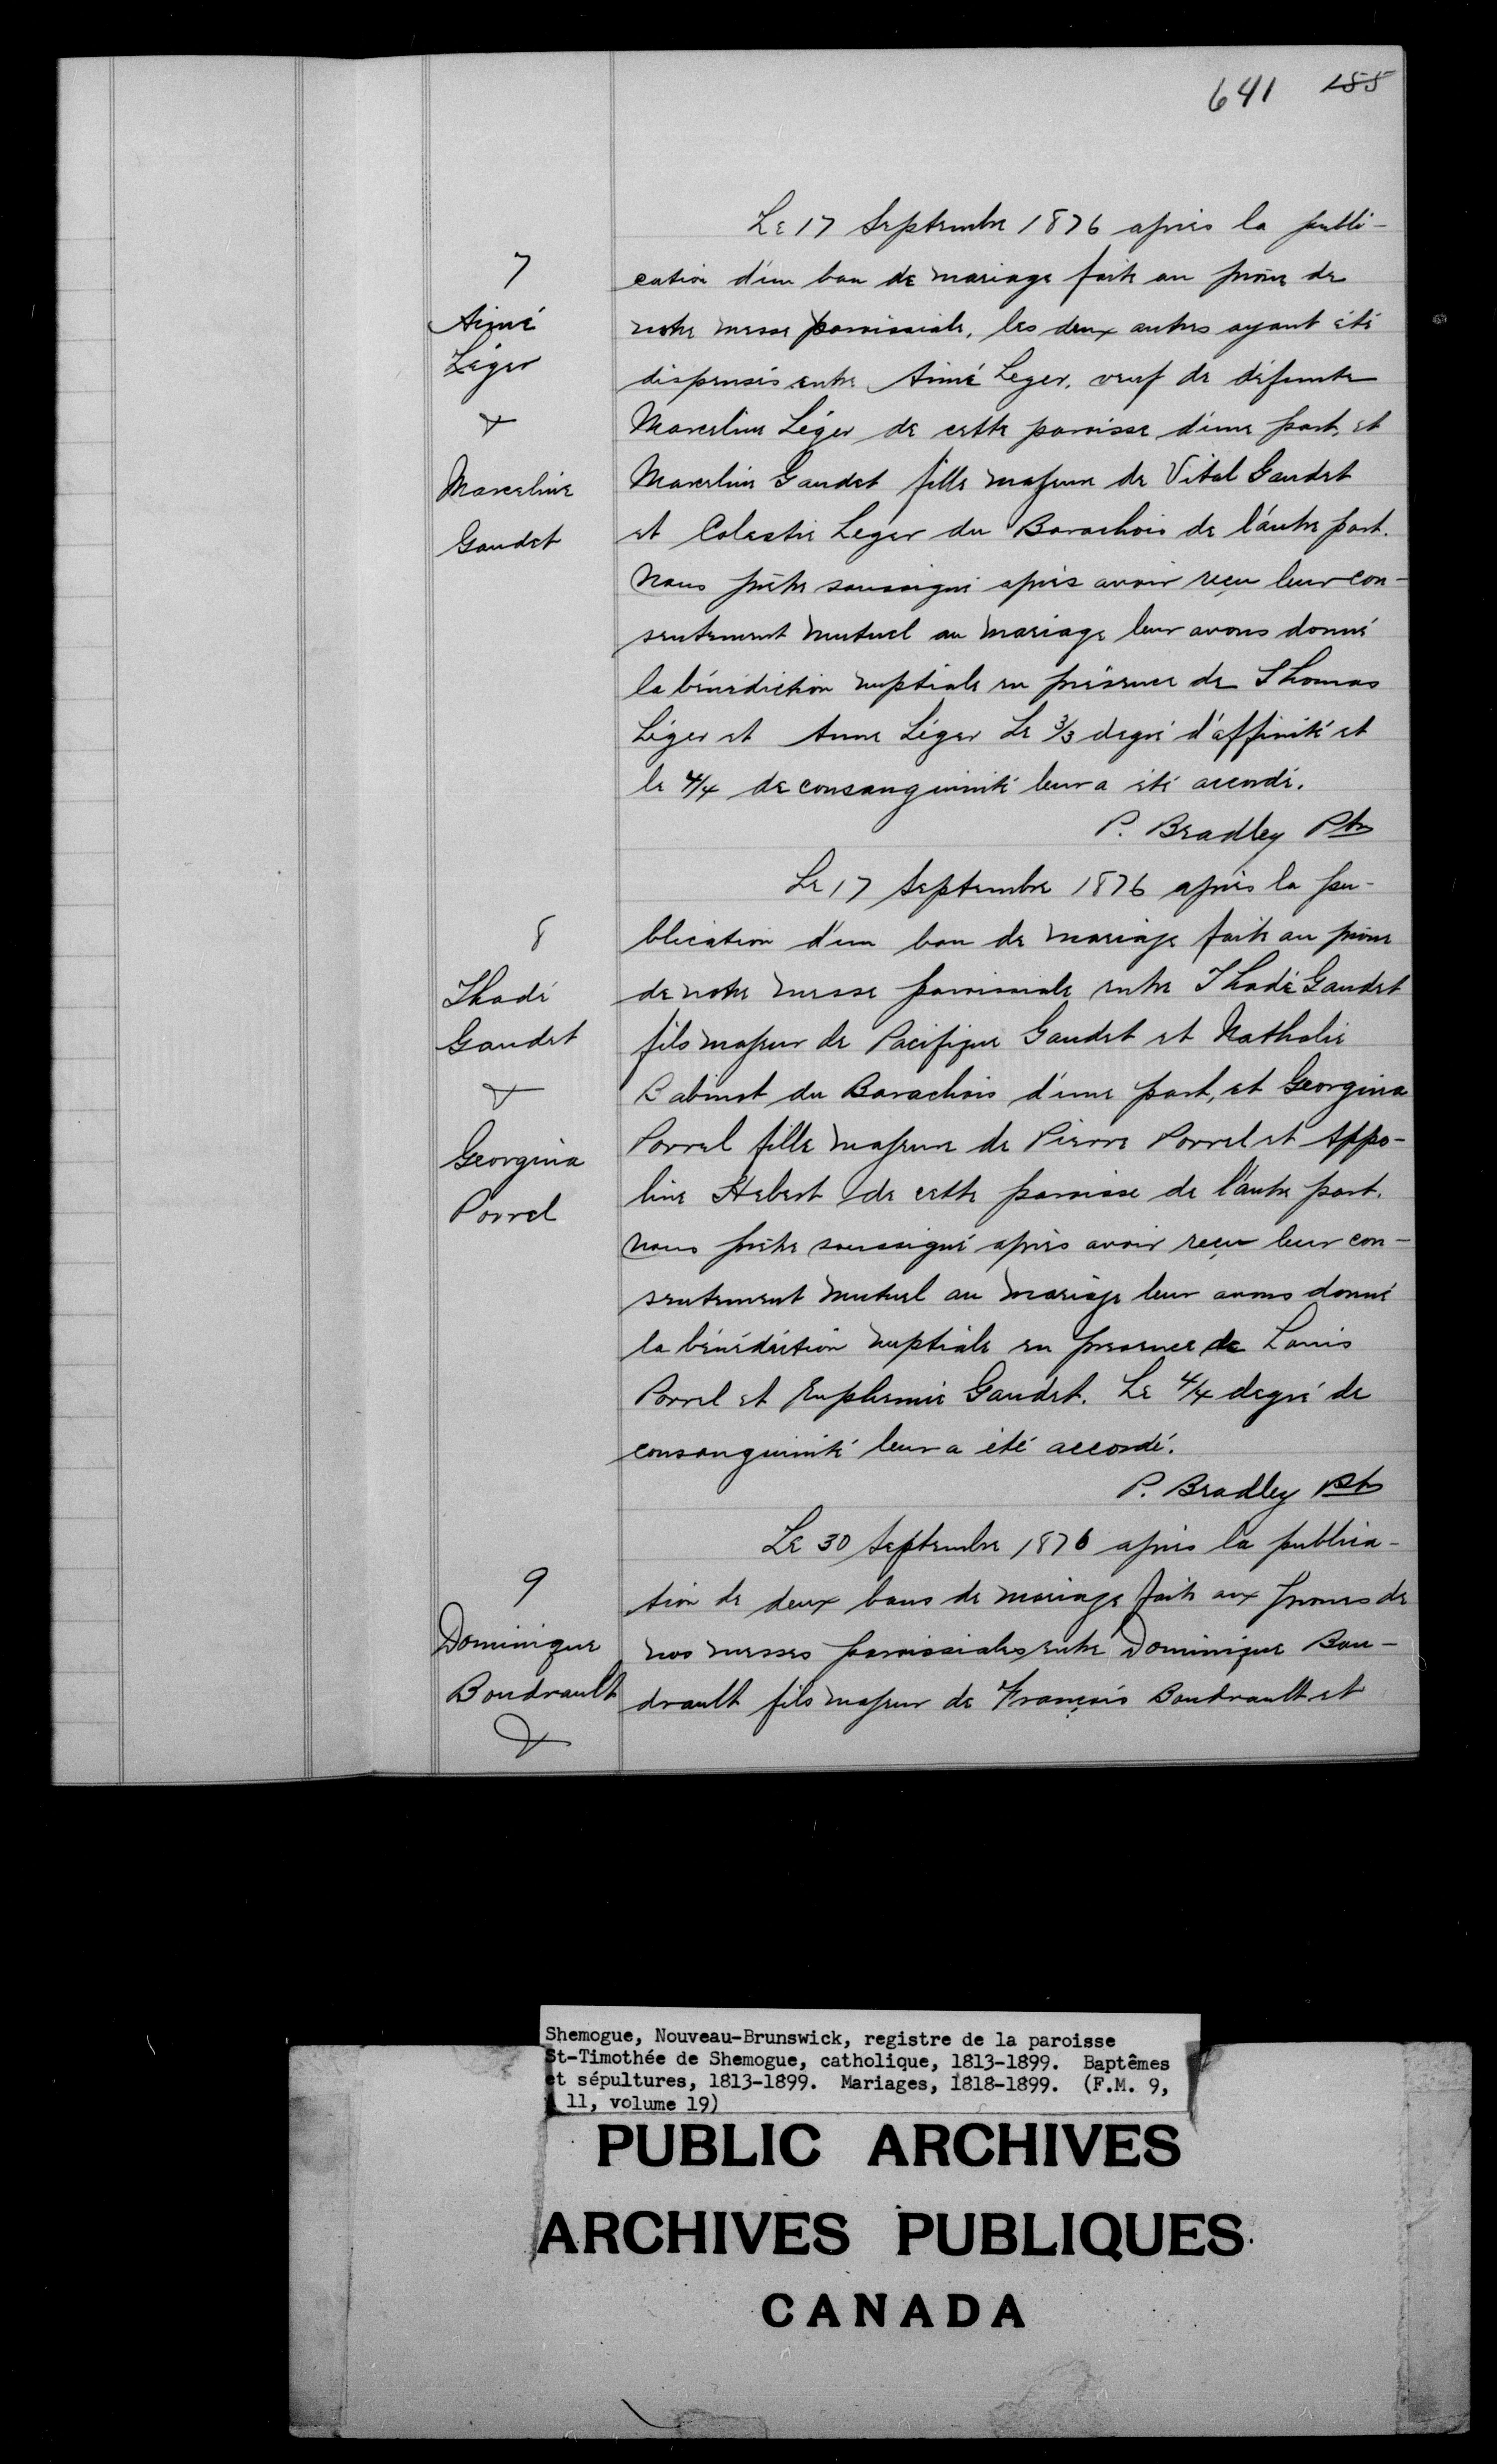 641 155
Le 17 Septembre 1876 après la publi-
7
cation d'un ban de mariage faite au prône de
Aimé
notre messe paroissiale, les deux autres ayant été
Léger
dispensés entre Aimé Leger, veuf de défunte
&
Marceline Léger de cette paroisse d'une part, et
Marceline
Marceline Gaudet fille majeure de Vital Gaudet
Gaudet
et Colastie Leger du Barachois de l'autre part.
Nous prêtre soussigné après avoir reçu leur con-
sentement mutuel au mariage leur avons donné
la bénédiction nuptiale en présence de Thomas
Léger et Anne Léger Le 3/3 degré d'affinité et
le 4/4 de consanguinité leur a été accordé.
P. Bradley Ptre
Le 17 Septembre 1876 après la pu-
8
blication d'un ban de mariage faite au prône
Thadé
de notre messe paroissiale entre Thadé Gaudet
Gaudet
fils majeur de Pacifique Gaudet et Nathalie
&
Babinot du Barachois d'une part, et Georgina
Georgina
Porrel fille majeure de Pierre Porrel et Appo-
Porrel
line Hebert de cette paroisse de l'autre part.
Nous prêtre soussigné après avoir reçu leur con-
sentement mutuel au mariage leur avons donné
la bénédiction nuptiale en presence de Louis
Porrel et Euphemie Gaudet. Le 4/4 degré de
consanguinité leur a été accordé.
P. Bradley Ptre
Le 30 Septembre 1876 après la publica-
9
tion de deux bans de mariage faite aux prones de
Dominique
nos messes paroissiales entre Dominique Bou-
Boudrault
drault fils majeur de François Boudrault et
&
Shemogue, Nouveau-Brunswick, registre de la paroisse
St-Timothée de Shemogue, catholique, 1813-1899. Baptêmes
et sépultures, 1813-1899. Mariages, 1818-1899. (F.M. 9,
11, volume 19)
PUBLIC ARCHIVES
ARCHIVES PUBLIQUES
CANADA